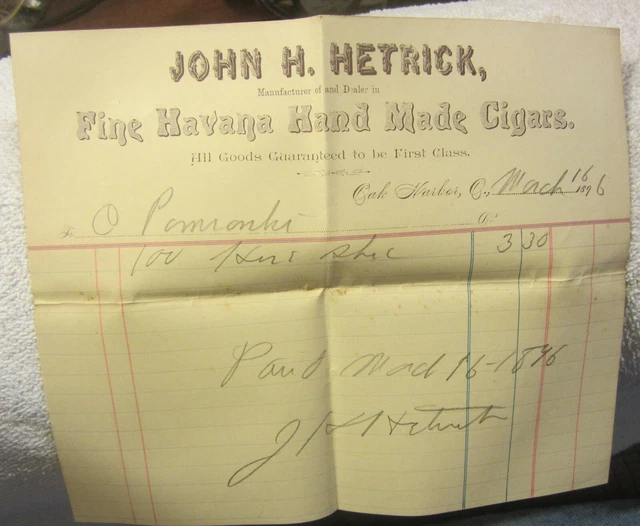 JOHN H. HETRICK,
Manufacturer of and Dealer in
Fine Havana Hand Made Cigars.
All Goods Guaranteed to be First Class.
Oak Harbor, O., March 16 1896
To O
100 3 30
Paid 16-1896
J H Hetrick